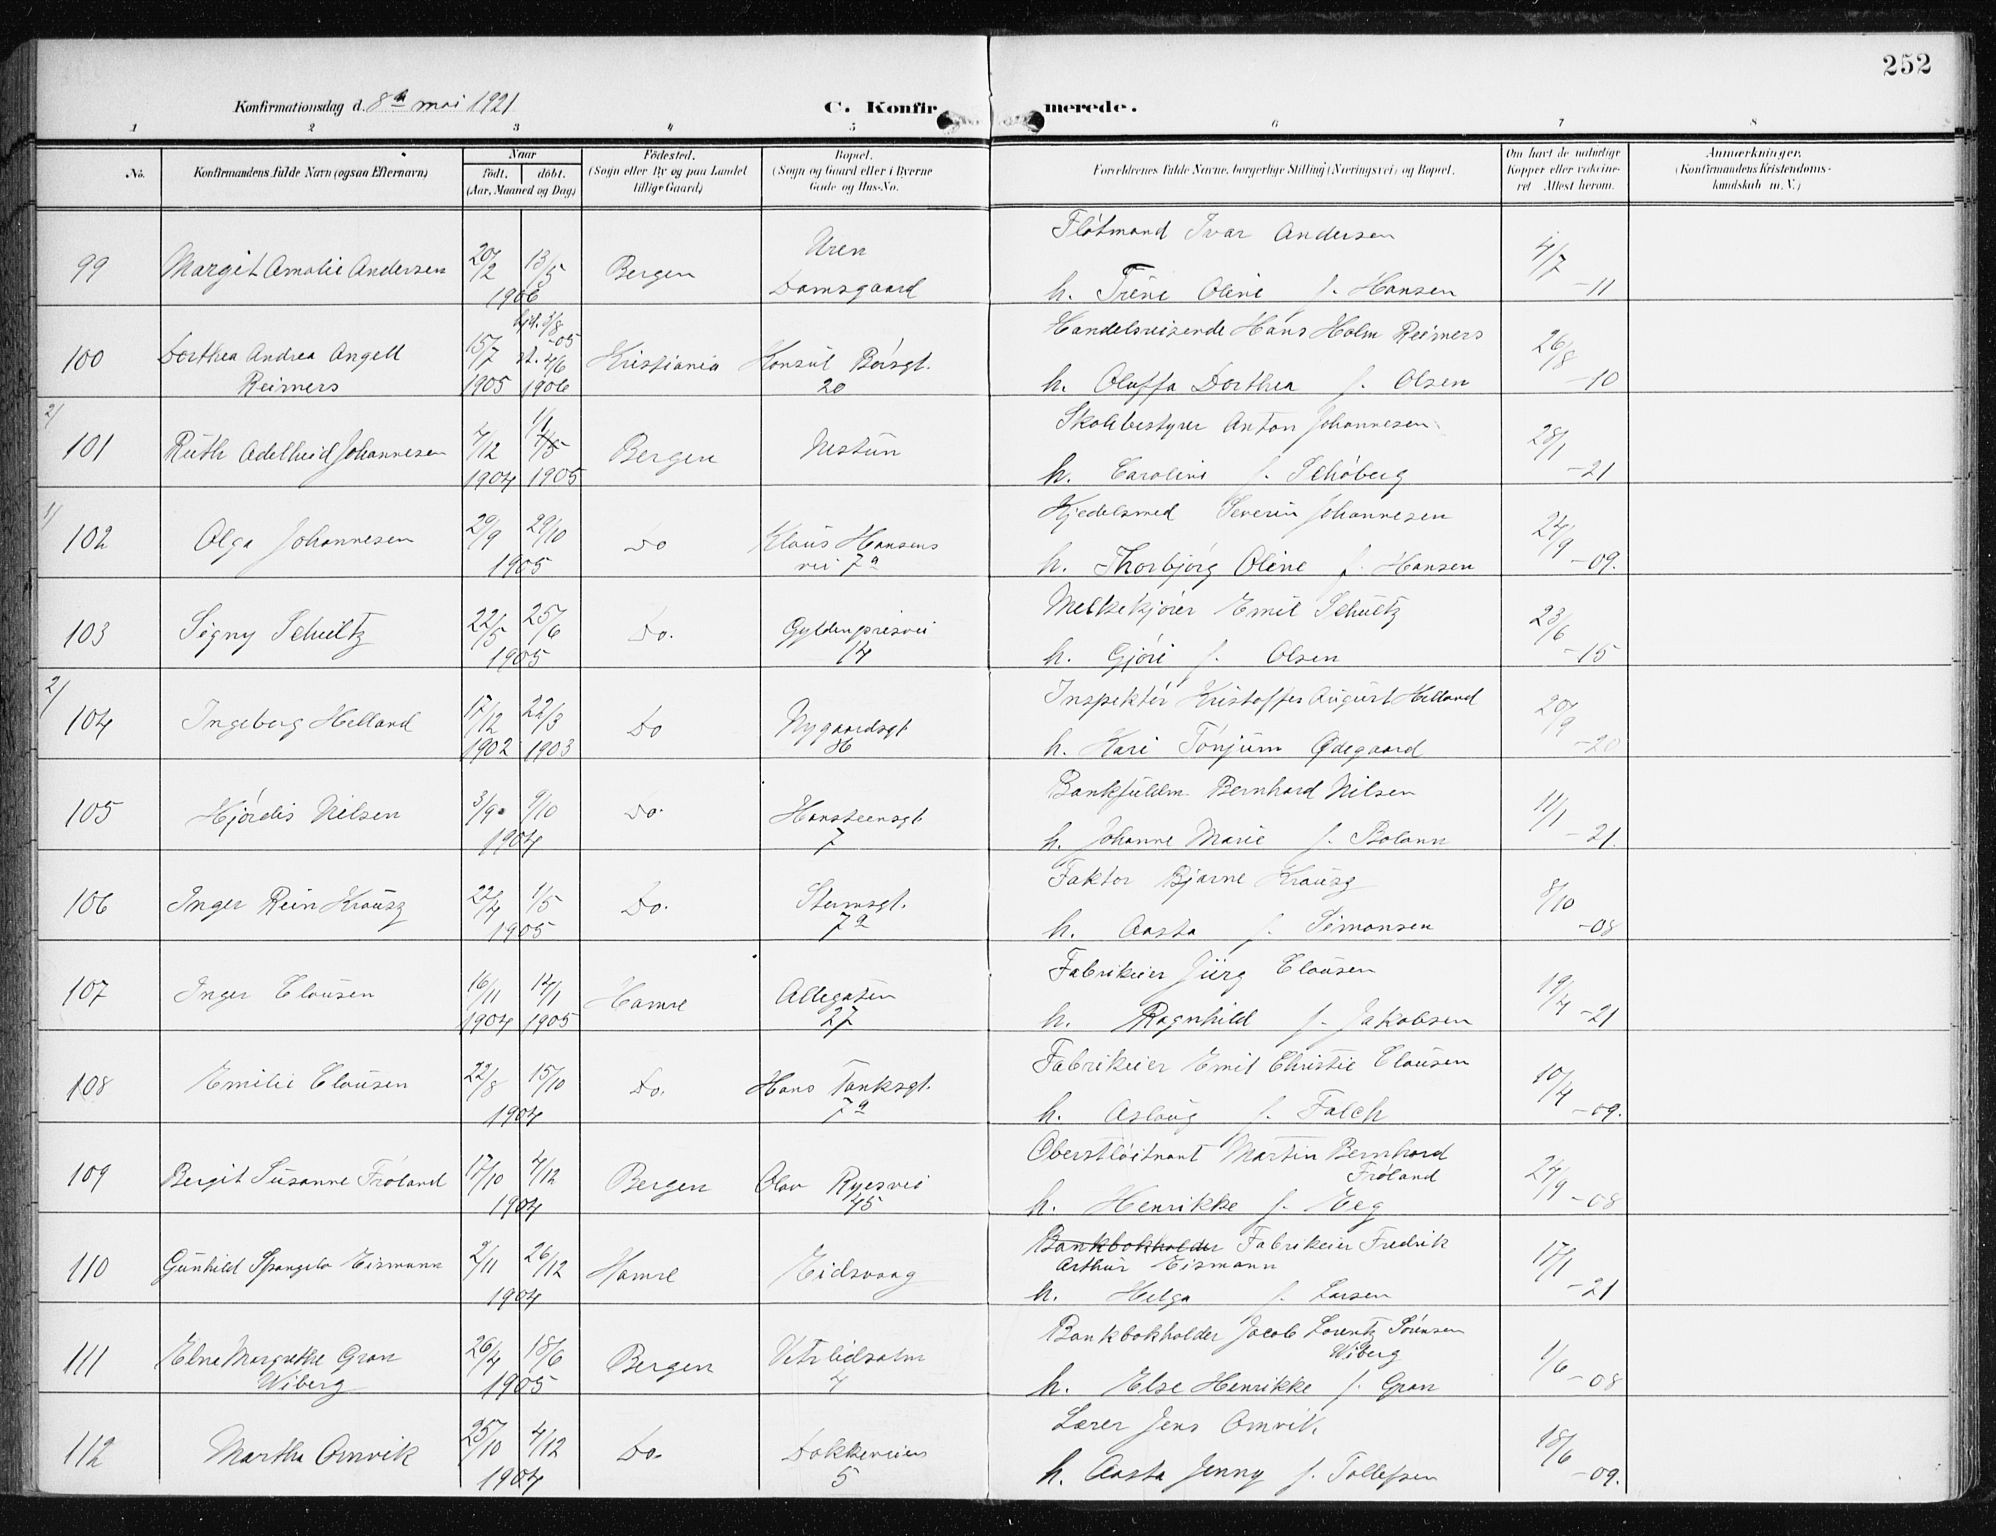 252
Konfirmationsdag d. 8de mai 1921
C. Konfirmerede.
1 2 3 4 5 6 7 8
No. Konfirmandens fulde Navn (ogsaa Efternavn) Naar født. døbt. (Aar, Maaned og Dag) Fødested. (Sogn eller By og paa Landet tillige Gaard) Bopæl. (Sogn og Gaard eller i Byerne Gade og Hus-No. Forældrenes fulde Navne, borgerlige Stilling (Næringsvei) og Bopæl. Om havt de naturlige Kopper eller vakcineret. Attest herom. Anmærkninger. (Konfirmandens Kristendomskundskab m. V.)
99 Margit Amalie Andersen 20/2 13/5 1906 Bergen Uren Damsgaard Fløtmand Ivar Andersen
h. Trine Oline f. Hansen 4/7 -11
100 Dorthea Andrea Angell Reimers 15/7 1905 hjd. 3/8 -05 st. 4/6 1906 Kristiania Konsul Børsgt. 20 Handelsreizende Hans Holm Reimers
h. Oluffa Dorthea f. Olsen 26/8 -10
2/ 101 Ruth Adelheid Johannesen 4/12 1904 1/1 1905 Bergen Nestun Skolebestyrer Anton Johannesen
h. Caroline f. Schøberg 28/1 -21
1/ 102 Olga Johannesen 29/9 29/10 1905 Do Klaus Hansens vei 7a Kjedelsmed Severin Johannesen
h. Thorbjørg Oline f. Hansen 24/9 -09.
103 Signy Schultz 22/5 25/6 1905 Do. Gyldenprisvei 14 Melkekjører Emil Schultz
h. Gjøri f. Olsen 23/6 -15
2/ 104 Ingeborg Helland 17/12 1902 22/3 1903 Do Nygaardsgt 86 Inspektør Kristoffer August Helland
h. Kari Tønjum Ødegaard 20/9 -20
105 Hjørdis Nilsen 3/9 9/10 1904 Do. Hansteensgt 7 Bankfuldm. Bernhard Nilsen
h. Johanne Marie f. Bolann 11/1 -21.
106 Inger Rein Krausz 22/4 1/5 1905 Do. Stermsgt. 7a Faktor Bjarne Krausz
h. Aasta f. Simonsen 8/10 -08
107 Inger Clausen 16/11 1904 14/1 1905 Hamre Allegaten 27 Fabrikeier Jürg Clausen
h. Ragnhild f. Jakobsen 19/4 -21
108 Emilie Clausen 22/8 15/10 1904 Do. Hans Tanksgt. 7a Fabrikeier Emil Christie Clausen
h. Aslaug f. Falch 10/4 -09.
109 Bergit Susanne Frøland 17/10 4/12 1904 Bergen Olav Ryesvei 45 Oberstløitnant Martin Bernhard Frøland
h. Henrikke f. Eeg 24/9 -08
110 Gunhild Spangelo Eismann 2/11 26/12 1904 Hamre Eidsvaag Bankbokholder Fabrikeier Fredrik Arthur Eismann
h. Helga f. Larsen 17/1 -21
111 Elne Margrethe Gran Wiberg 26/4 18/6 1905 Bergen Vetrlidsalm 4 Bankbokholder Jacob Lorentz Sørensen Wiberg
h. Else Henrikke f. Gran 1/6 -08
112 Martha Omvik 25/10 4/12 1904 Do. Dokkeveien 5 Lærer Jens Omvik.
h. Aasta Jenny f. Tollefsen 18/6 -09.